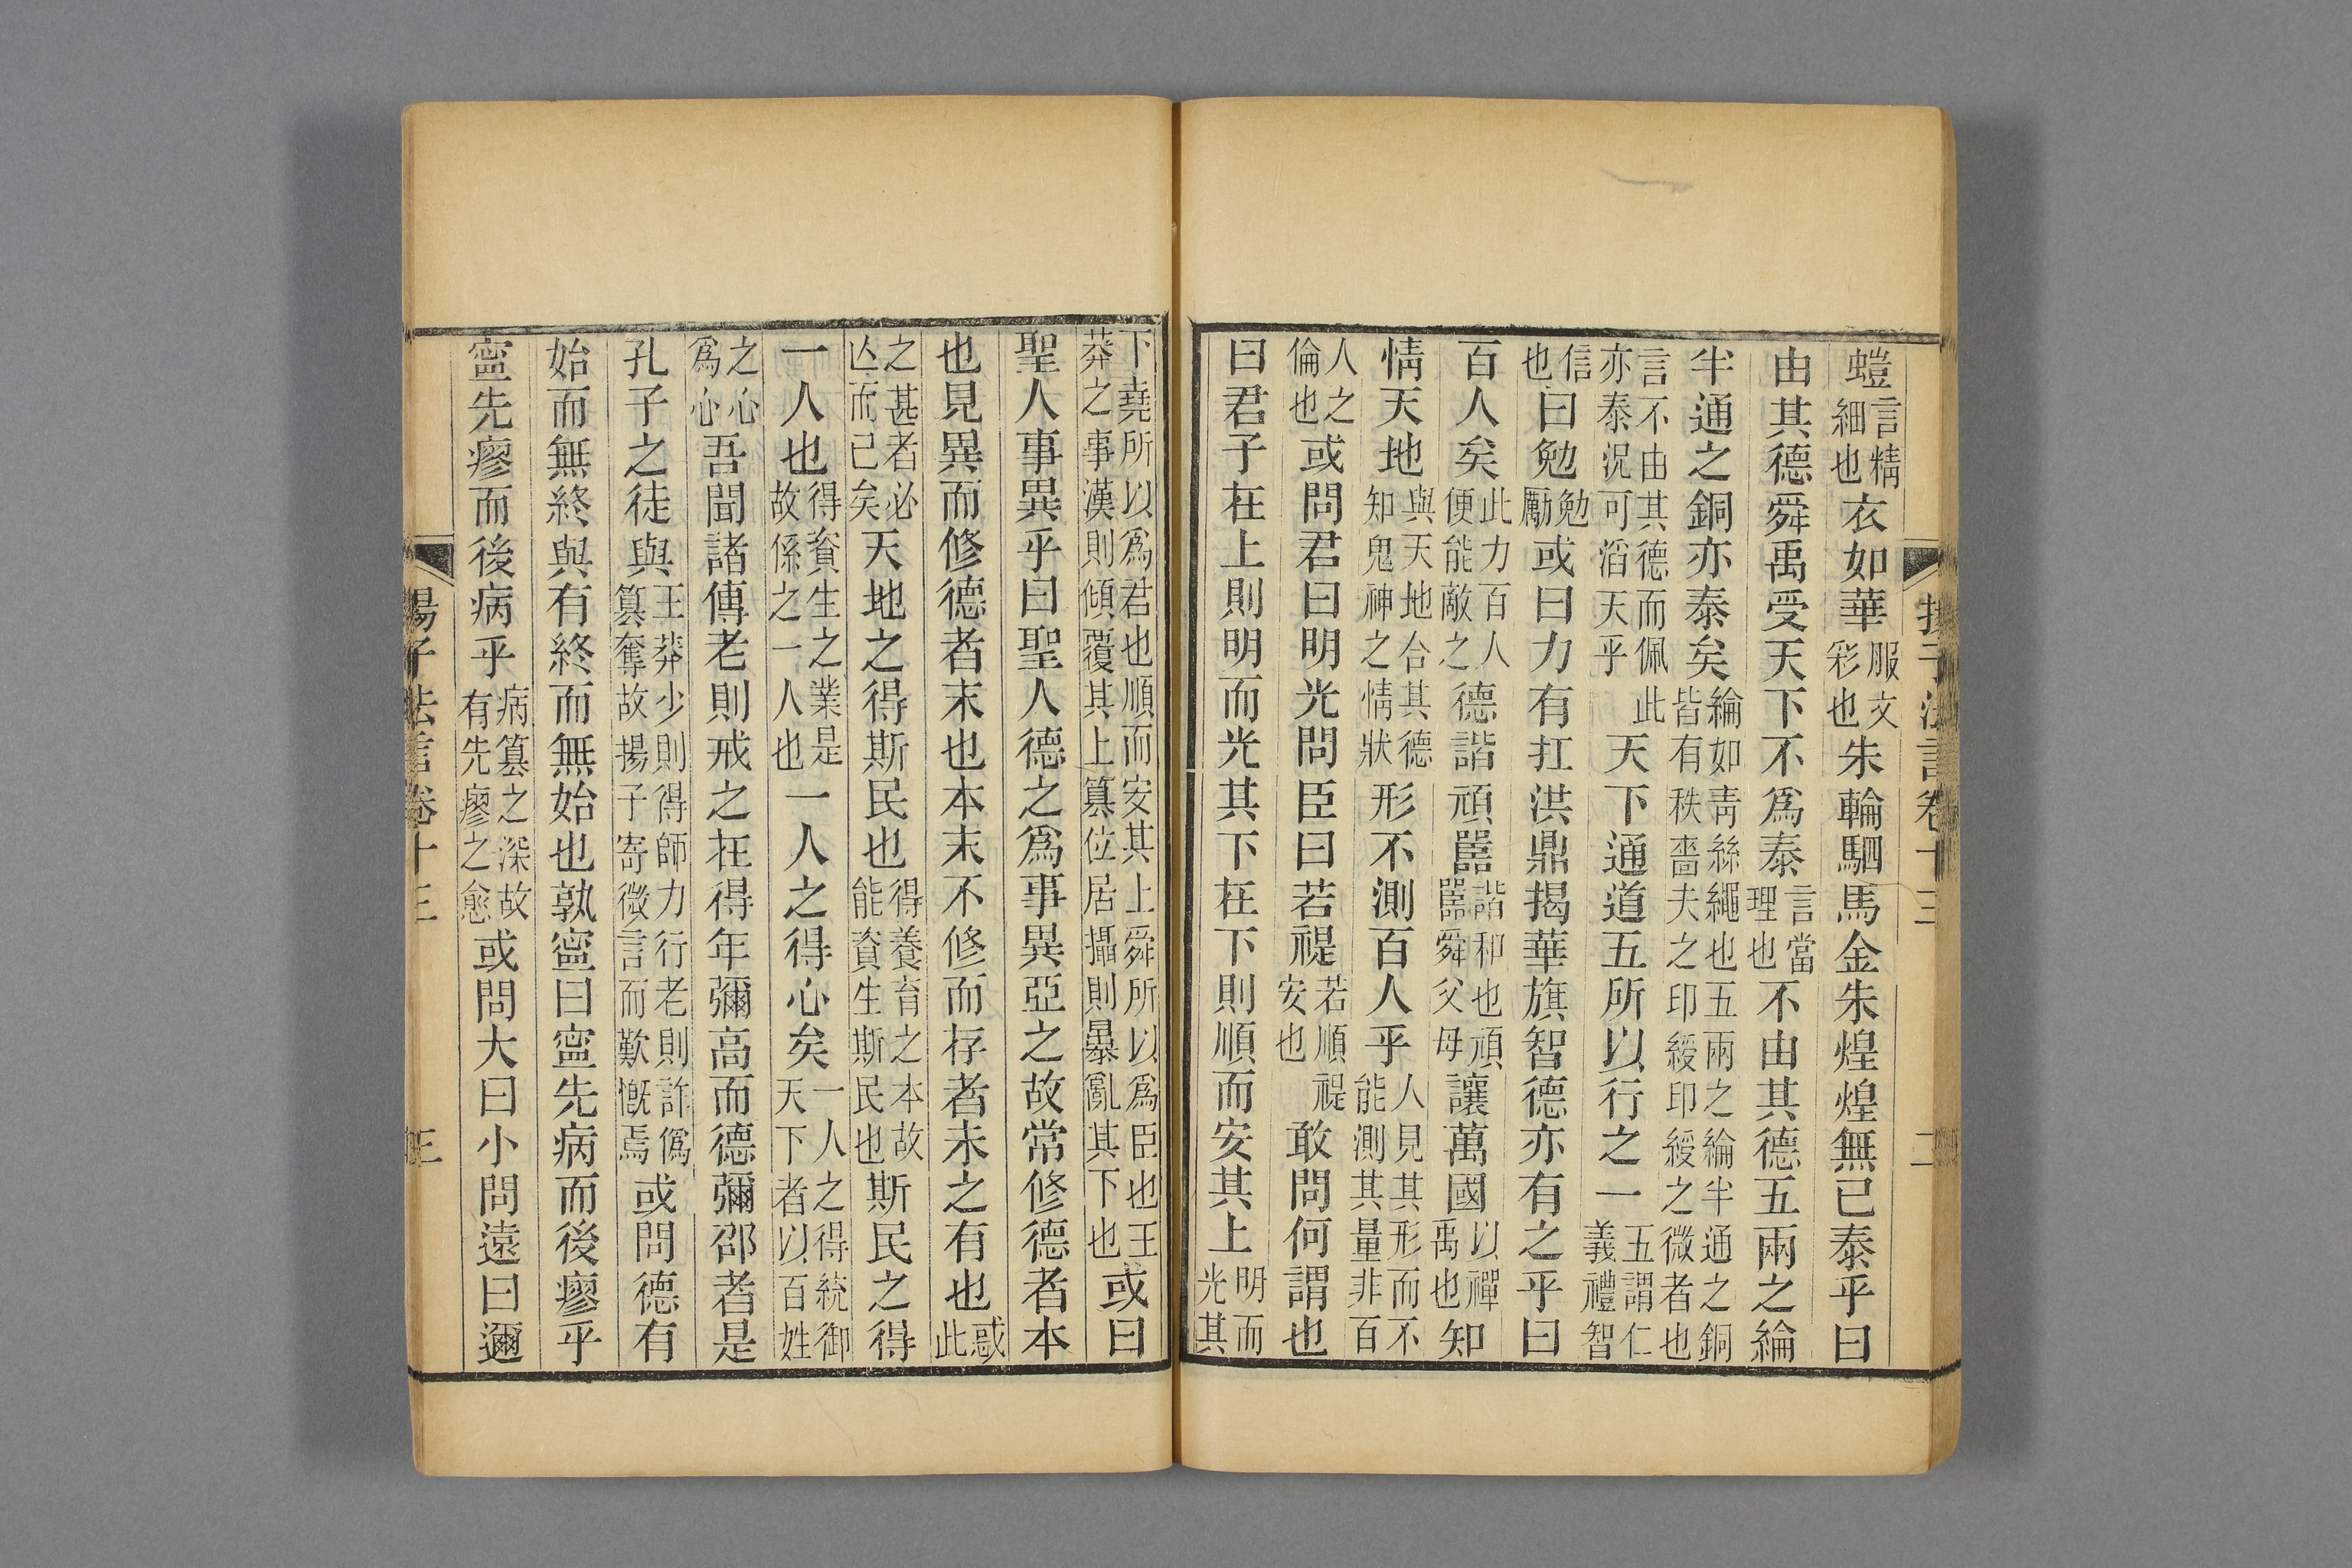 螘言精細也衣如華服文彩也朱輪駟馬金朱煌煌無已泰乎曰
由其德舜禹受天下不爲泰言當理也不由其德五兩之綸
半通之銅亦泰矣綸如靑絲繩也五兩之綸半通之銅皆有秩嗇夫之印綬印綬之微者也
言不由其德而佩此亦泰況可滔天乎天下通道五所以行之一五謂仁義禮智
信也曰勉勉勵或曰力有扛洪鼎揭華旗智德亦有之乎曰
百人矣此力百人便能敵之德諧頑嚚諧和也頑嚚舜父母讓萬國以禪禹也知
情天地與天地合其德知鬼神之情狀形不測百人乎人見其形而不能測其量非百
人之倫也或問君曰明光問臣曰若禔若順禔安也敢問何謂也
曰君子在上則明而光其下在下則順而安其上明而光其
下堯所以爲君也順而安其上舜所以爲臣也王莽之事漢則傾覆其上篡位居攝則暴亂其下也或曰
聖人事異乎曰聖人德之爲事異亞之故常修德者本
也見異而修德者末也本末不修而存者未之有也惑此
之甚者必亾而已矣天地之得斯民也得養育之本故能資生斯民也斯民之得
一人也得資生之業是故係之一人也一人之得心矣一人之得統御天下者以百姓
之心爲心吾聞諸傳老則戒之在得年彌高而德彌邵者是
孔子之徒與王莽少則得師力行老則詐僞篡奪故揚子寄微言而歎慨焉或問德有
始而無終與有終而無始也孰寍曰寍先病而後瘳乎
寍先瘳而後病乎病篡之深故有先瘳之愈或問大曰小問遠曰邇
揚子法言卷十三